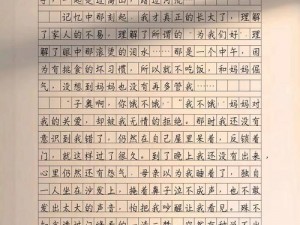 记忆中那刻起,我才真正的长大了,理解
了家人的不易,理解了所谓的“为我们好”理
解了眼中那滚烫的泪水……那是一个中午,因
为有挑食的坏习惯,所以就不吃饭,和妈妈倔
气,没想到妈妈也没有再多管我……
“子奥啊,你饿不饿”“我不饿”妈妈对
我的关爱,却被我无情的拒绝。那时我还没有
意识到我错了,仍然在自己屋里呆着,反锁着
门,就这样过了很久。到了晚上我还没有出来
心里仍然还有些气。母亲以为我睡着了,独自
一人坐在沙发上,掩着鼻子泣不成声,也不敢
发出太大的声音,怕把我吵醒让我看见。殊不